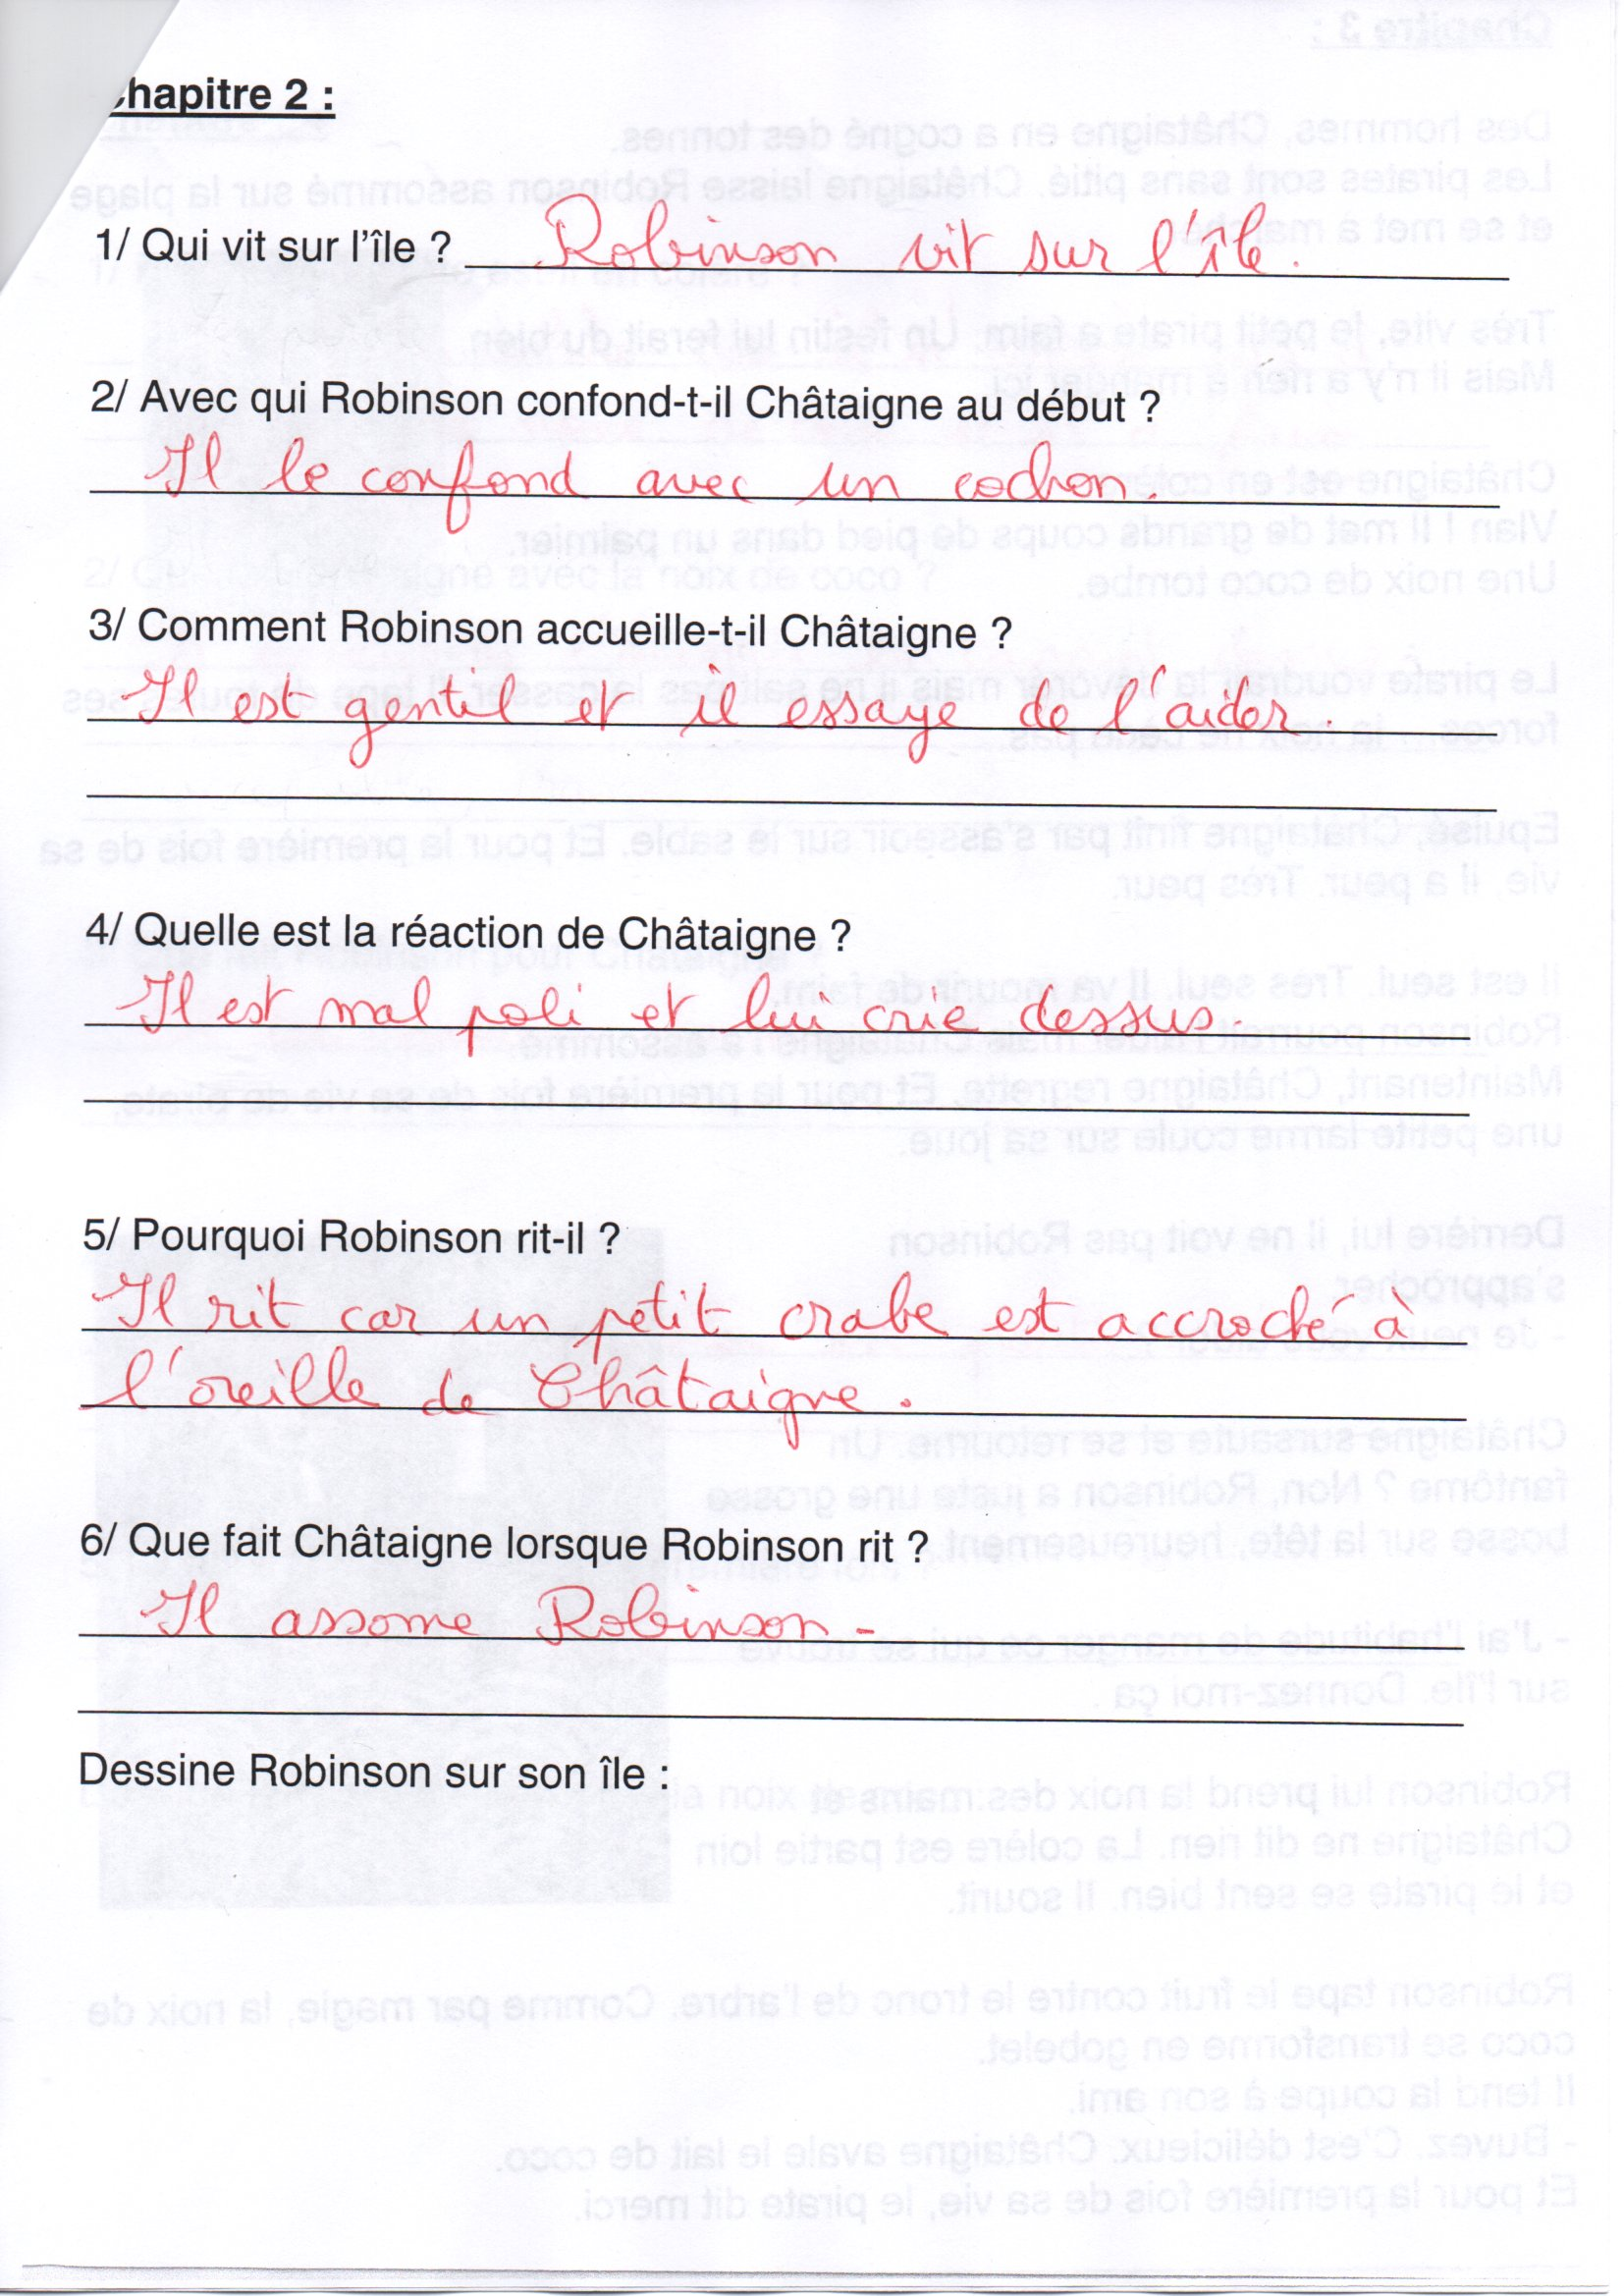 Chapitre 2 :
1/ Qui vit sur l'île ? Robinson vit sur l'île.
2/ Avec qui Robinson confond-t-il Châtaigne au début ?
Il le confond avec un cochon.
3/ Comment Robinson accueille-t-il Châtaigne ?
Il est gentil et il essaye de l'aider.
4/ Quelle est la réaction de Châtaigne ?
Il est mal poli et lui crie dessus.
5/ Pourquoi Robinson rit-il ?
Il rit car un petit crabe est accroché à
l'oreille de Châtaigne.
6/ Que fait Châtaigne lorsque Robinson rit ?
Il assome Robinson.
Dessine Robinson sur son île :